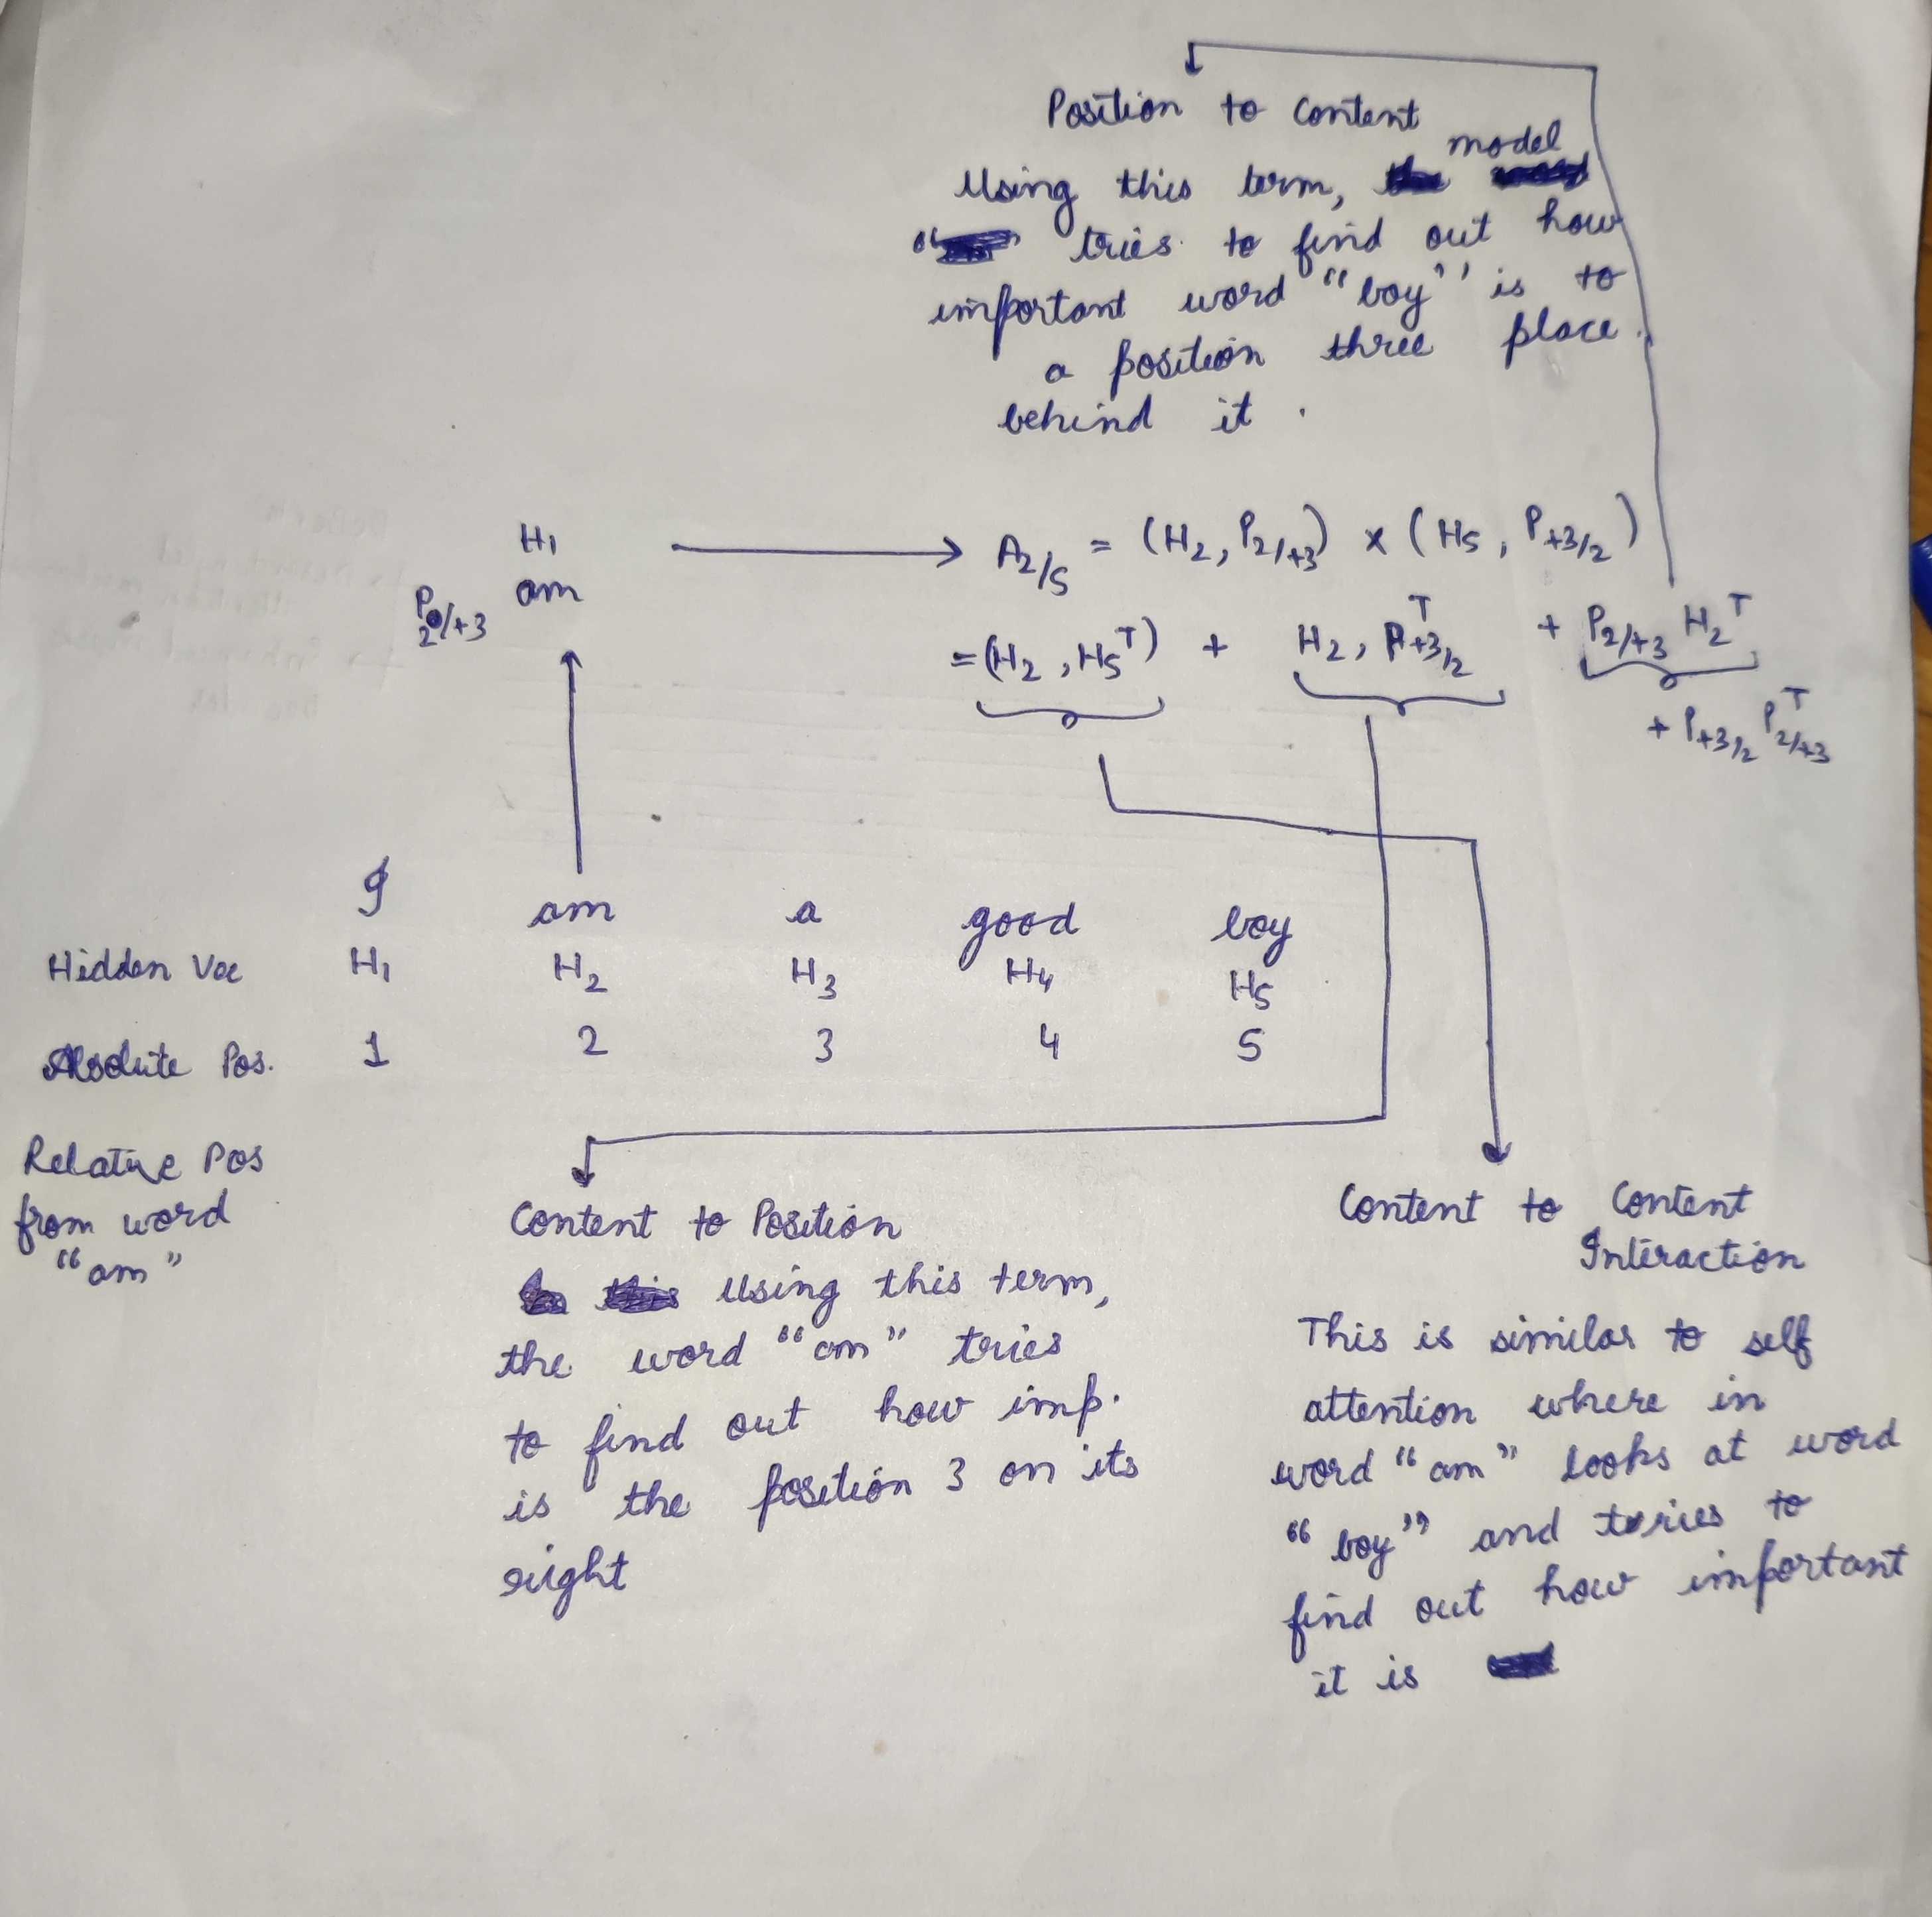 Position to Content
model
Using this term,
" tries to find out how
important word "boy" is to
a position three place
behind it.
H₁
am
P₂/+3
A₂/₅ = (H₂, P₂/+3) × (H₅, P+3/₂)
= (H₂, H₅ᵀ) + H₂, Pᵀ+3/₂ + P₂/+3 H₂ᵀ
+ P+3/₂ Pᵀ₂/+3
I am a good boy
Hidden Vec H₁ H₂ H₃ H₄ H₅
Absolute Pos. 1 2 3 4 5
Relative Pos
from word
"am"
Content to Position
Using this term,
the word "am" tries
to find out how imp.
is the position 3 on its
right
Content to Content
Interaction
This is similar to self
attention where in
word "am" looks at word
"boy" and tries to
find out how important
it is